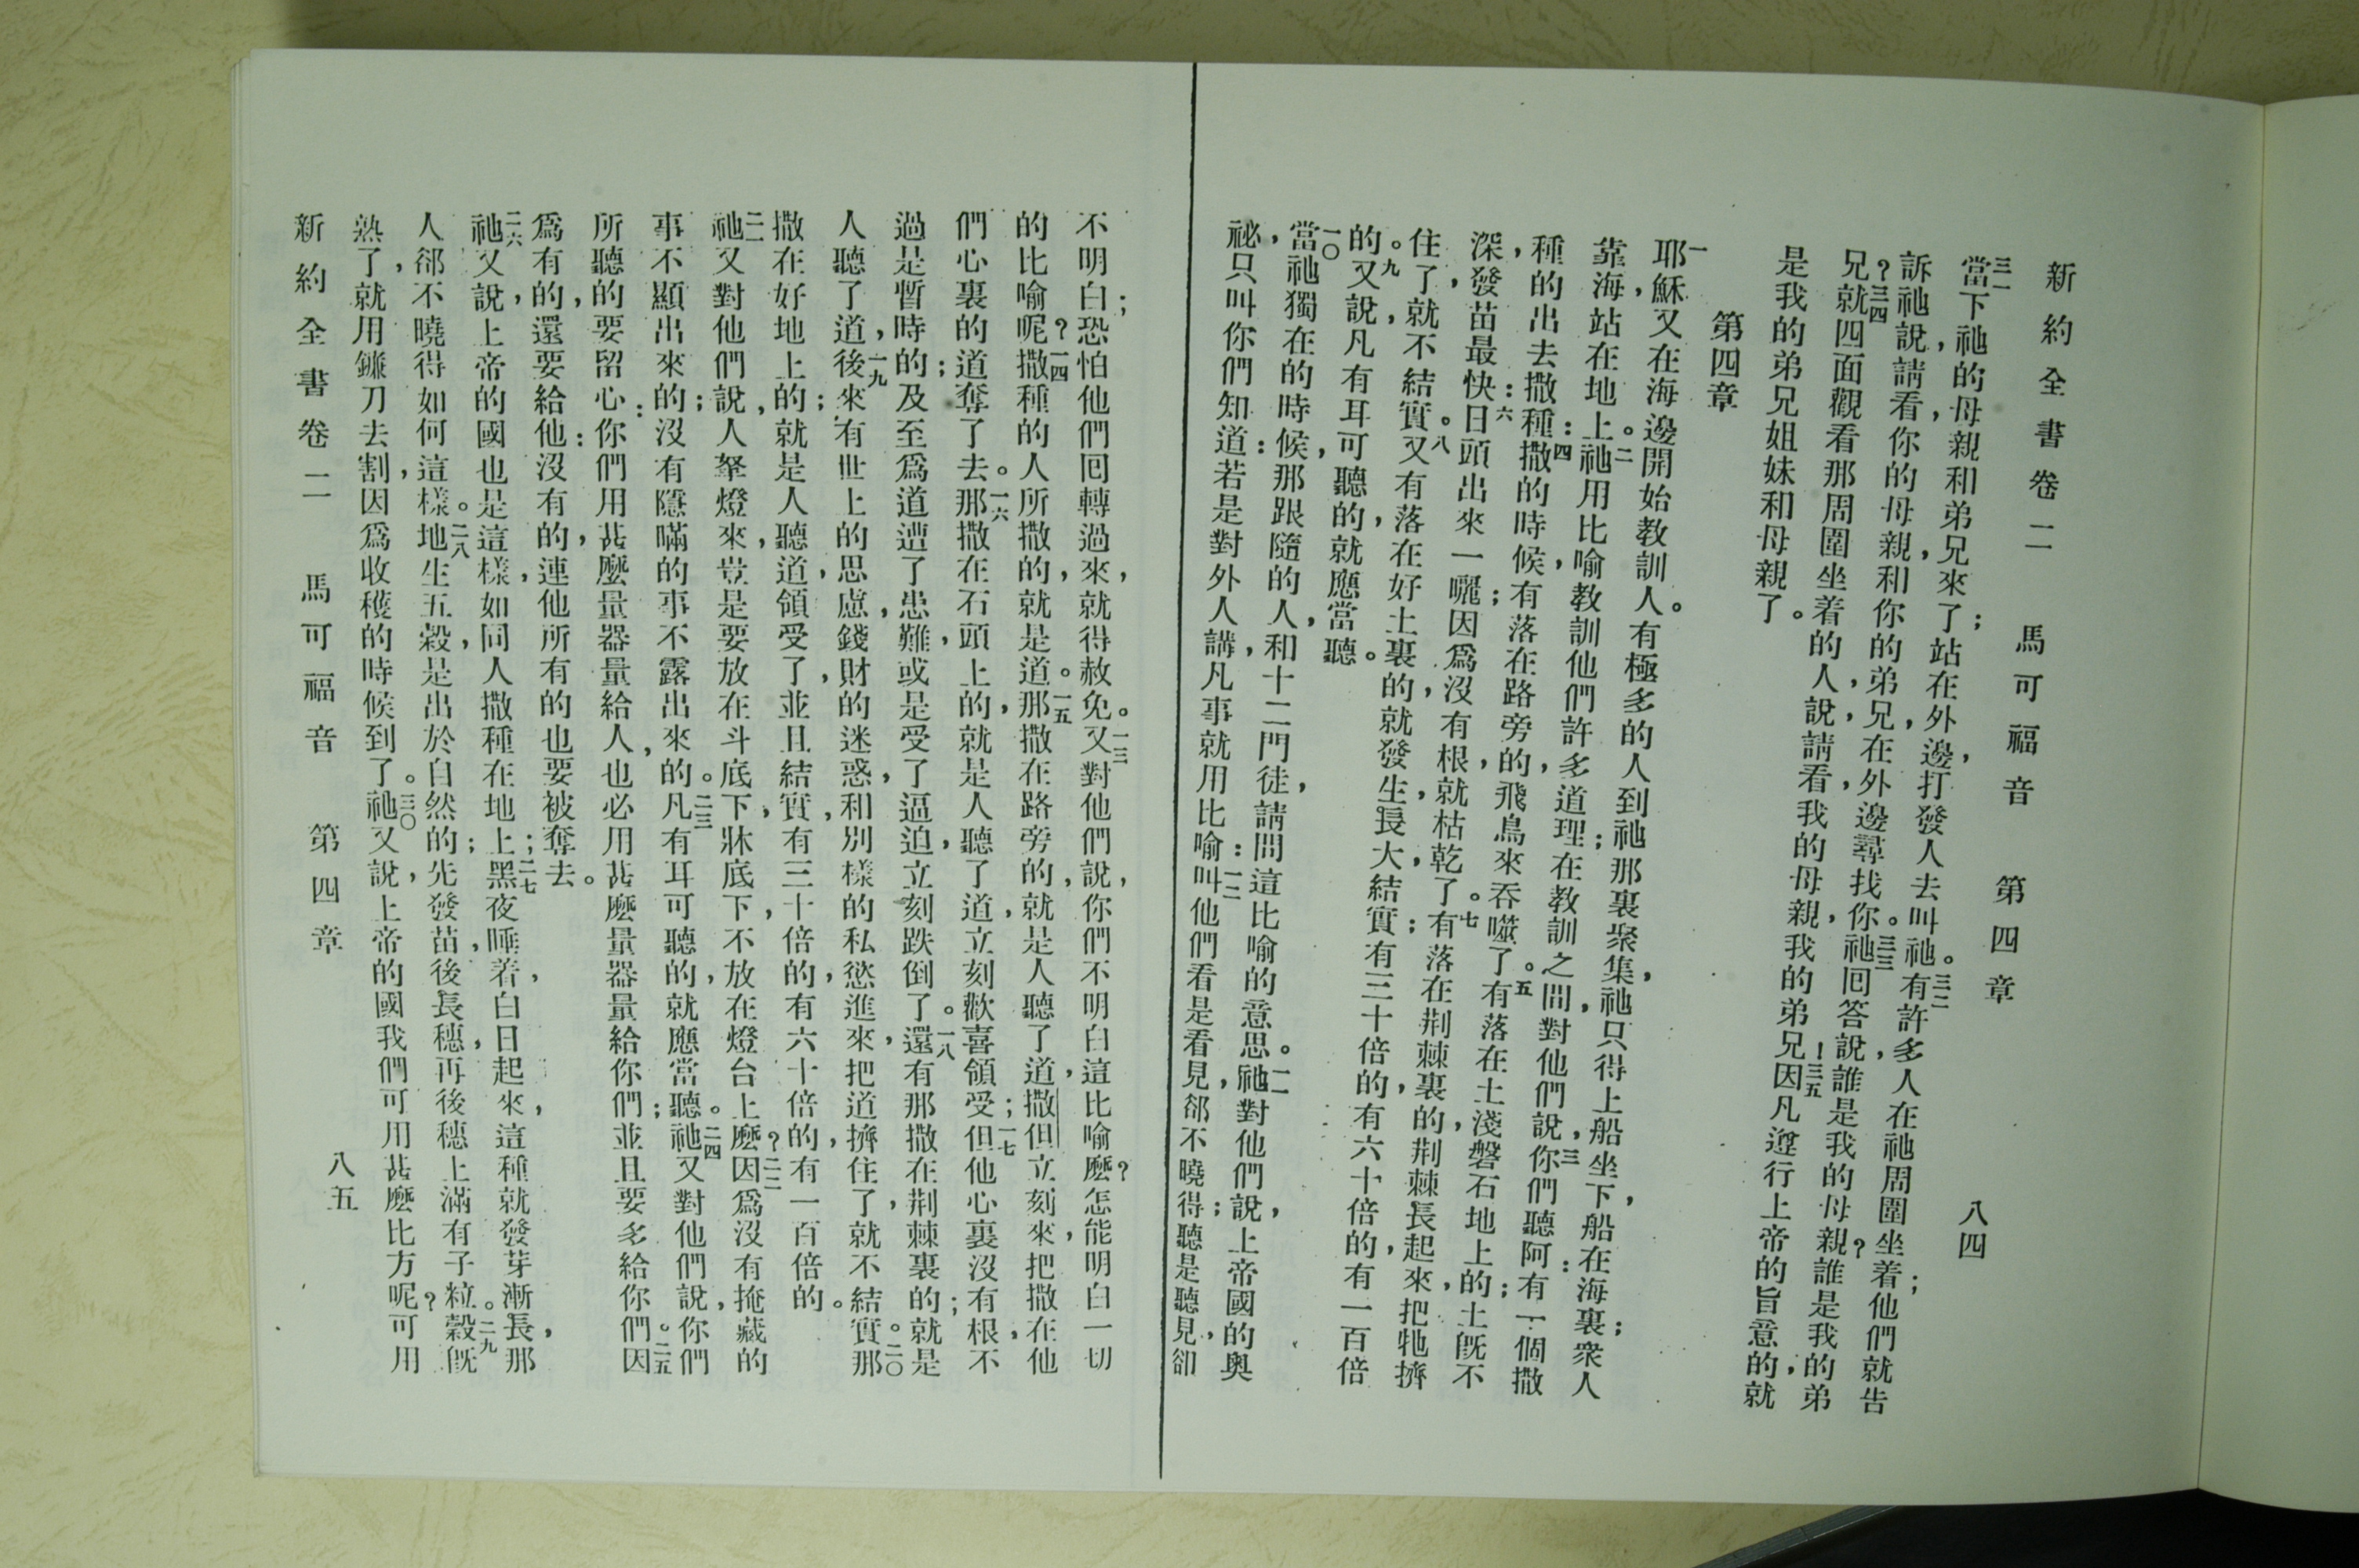 新約全書卷二　馬可福音　第四章　八四
三一當下祂的母親和弟兄來了；站在外邊，打發人去叫祂。三二有許多人在祂周圍坐着；他們就告
訴祂說，請看，你的母親，和你的弟兄，在外邊尋找你。三三祂囘答說，誰是我的母親？誰是我的弟
兄？三四就四面觀看那周圍坐着的人，說，請看，我的母親，我的弟兄！三五因凡遵行上帝的旨意的，就
是我的弟兄姐妹和母親了。
第四章
一耶穌又在海邊開始教訓人。有極多的人到祂那裏聚集，祂只得上船坐下，船在海裏；衆人
靠海，站在地上。二祂用比喻教訓他們許多道理；在教訓之間，對他們說，三你們聽阿：有一個撒
種的出去撒種：四撒的時候，有落在路旁的，飛鳥來吞噬了。五有落在土淺磐石地上的；土旣不
深，發苗最快：六日頭出來一曬；因爲沒有根，就枯乾了。七有落在荆棘裏的，荆棘長起來，把牠擠
住了，就不結實。八又有落在好土裏的，就發生，長大，結實；有三十倍的，有六十倍的，有一百倍
的。九又說，凡有耳可聽的，就應當聽。
一〇當祂獨在的時候，那跟隨的人，和十二門徒，請問這比喻的意思。一一祂對他們說，上帝國的奧
祕，只叫你們知道：若是對外人講，凡事就用比喻：一二叫他們看是看見，郤不曉得；聽是聽見，卻
不明白；恐怕他們囘轉過來，就得赦免。一三又對他們說，你們不明白這比喻麼？怎能明白一切
的比喻呢？一四撒種的人所撒的，就是道。一五那撒在路旁的，就是人聽了道，撒但立刻來，把撒在他
們心裏的道奪了去。一六那撒在石頭上的，就是人聽了道，立刻歡喜領受；一七但他心裏沒有根，不
過是暫時的；及至爲道遭了患難，或是受了逼迫，立刻跌倒了。一八還有那撒在荆棘裏的；就是
人聽了道，一九後來有世上的思慮，錢財的迷惑，和別樣的私慾進來，把道擠住了，就不結實。二〇那
撒在好地上的；就是人聽道，領受了，並且結實，有三十倍的，有六十倍的，有一百倍的。
二一祂又對他們說，人拏燈來，豈是要放在斗底下，牀底下，不放在燈台上麼？二二因爲沒有掩藏的
事不顯出來的；沒有隱瞞的事不露出來的。二三凡有耳可聽的，就應當聽。二四祂又對他們說，你們
所聽的要留心：你們用甚麼量器量給人，也必用甚麼量器量給你們；並且要多給你們。二五因
爲有的，還要給他：沒有的，連他所有的也要被奪去。
二六祂又說，上帝的國也是這樣，如同人撒種在地上；二七黑夜睡着，白日起來，這種就發芽漸長，那
人郤不曉得如何這樣。二八地生五穀，是出於自然的；先發苗，後長穗，再後穗上滿有子粒。二九穀旣
熟了，就用鐮刀去割，因爲收穫的時候到了。三〇祂又說，上帝的國我們可用甚麼比方呢？可用
新約全書卷二　馬可福音　第四章　八五